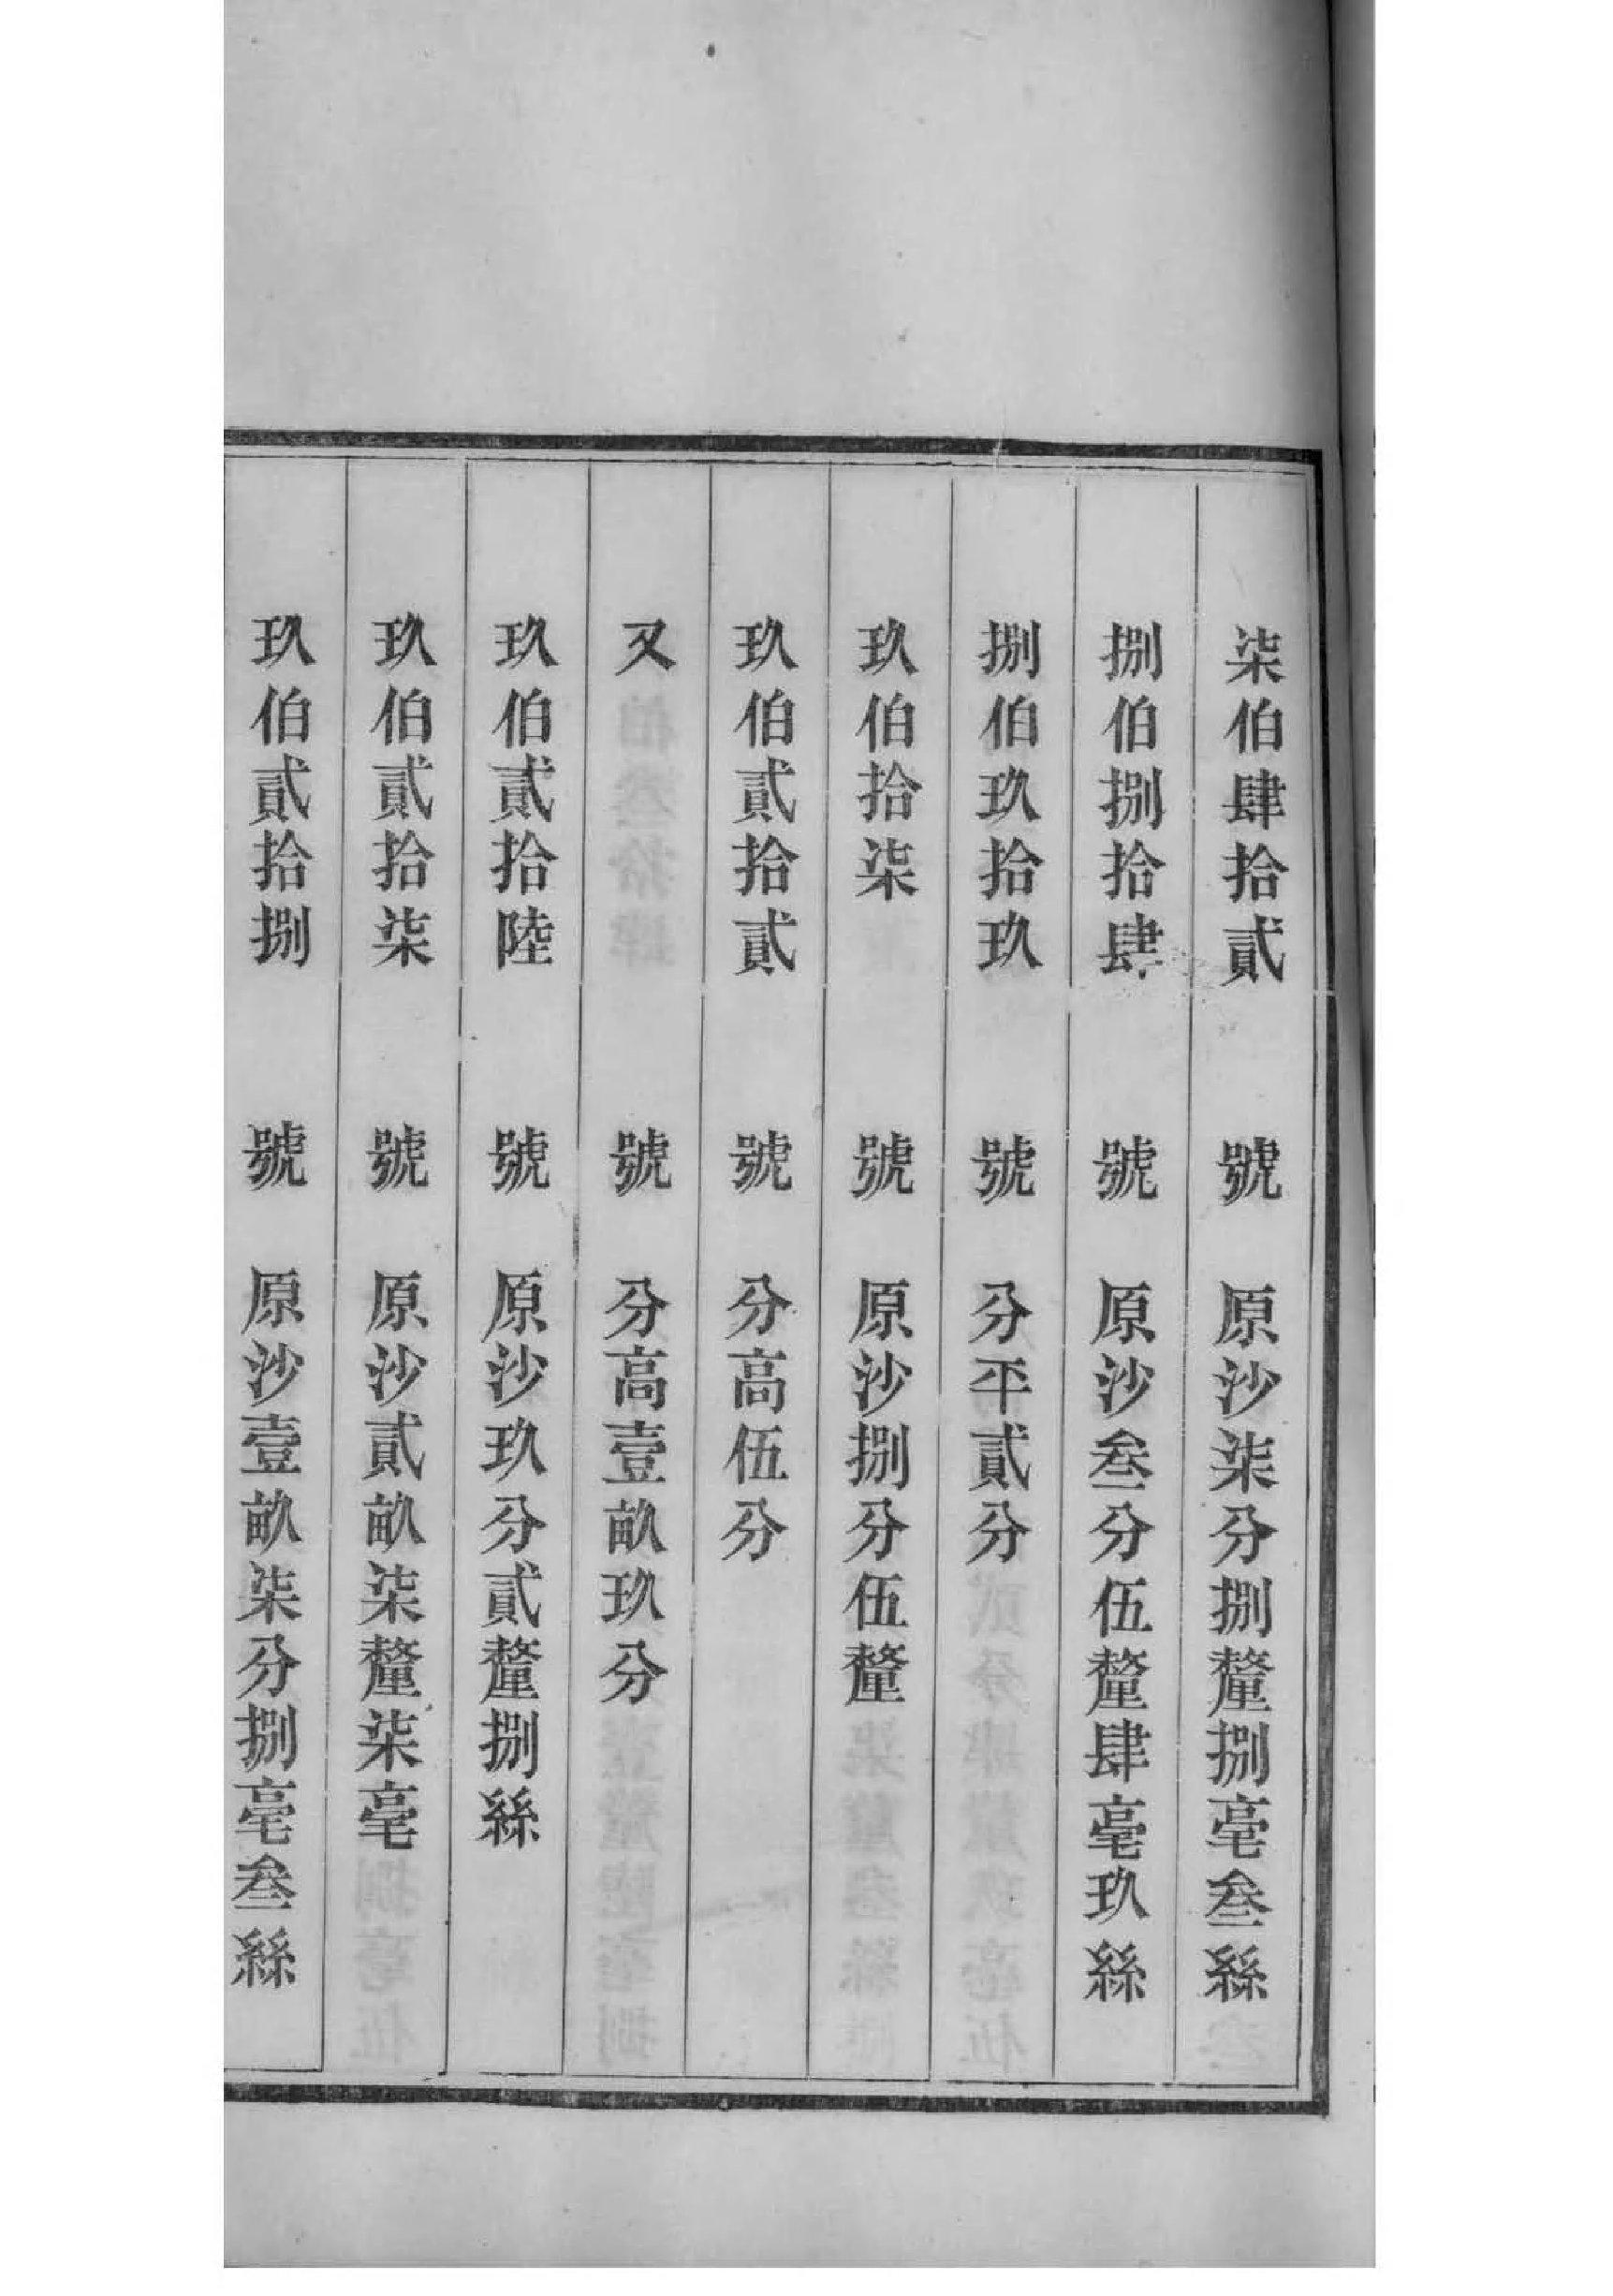 柒伯肆拾貳　號　原沙柒分捌釐捌毫叁絲
捌伯捌拾肆　號　原沙叁分伍釐肆毫玖絲
捌伯玖拾玖　號　分平貳分
玖伯拾柒　號　原沙捌分伍釐
玖伯貳拾貳　號　分高伍分
又　號　分高壹畝玖分
玖伯貳拾陸　號　原沙玖分貳釐捌絲
玖伯貳拾柒　號　原沙貳畝柒釐柒毫
玖伯貳拾捌　號　原沙壹畝柒分捌毫叁絲